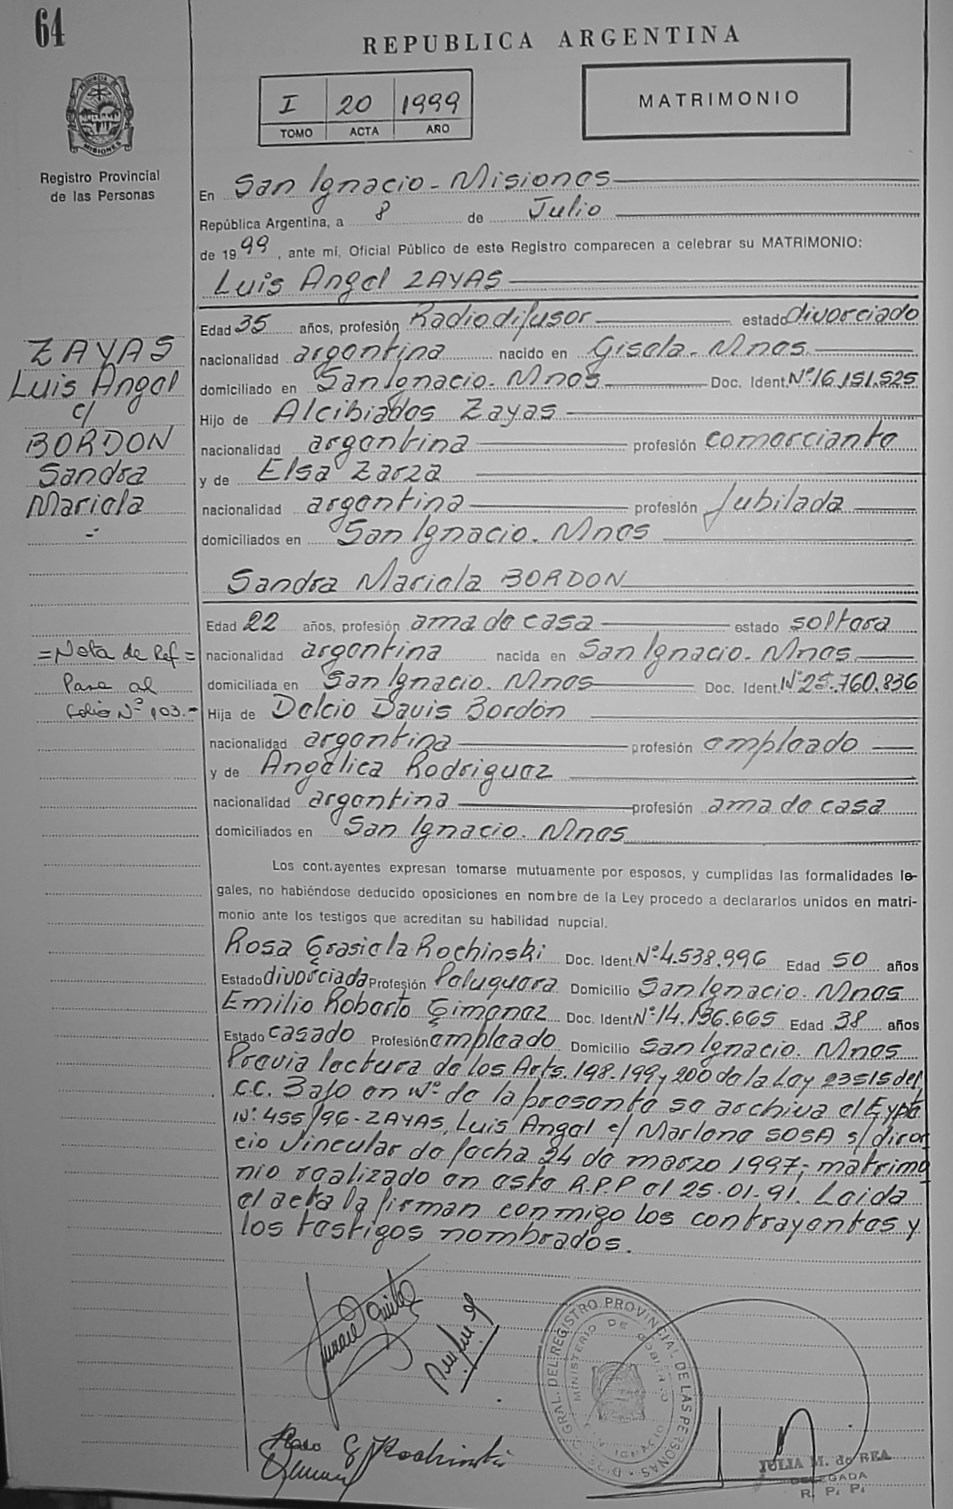 64
REPUBLICA ARGENTINA
I 20 1999
TOMO ACTA AÑO
MATRIMONIO
Registro Provincial
de las Personas
En San Ignacio - Misiones
República Argentina, a 8 de Julio
de 1999, ante mí, Oficial Público de este Registro comparecen a celebrar su MATRIMONIO:
Luis Angel ZAYAS
Edad 35 años, profesión Radiodifusor estado divorciado
nacionalidad argentina nacido en Gisela - Mnes.
domiciliado en San Ignacio - Mnes Doc. Ident. Nº 16.151.525
Hijo de Alcibiades Zayas
nacionalidad argentina profesión comerciante
y de Elsa Zarza
nacionalidad argentina profesión Jubilada
domiciliados en San Ignacio. Mnes
ZAYAS
Luis Angel
c/
BORDON
Sandra
Mariela
Sandra Mariela BORDON
Edad 22 años, profesión ama de casa estado soltera
nacionalidad argentina nacida en San Ignacio. Mnes.
domiciliada en San Ignacio. Mnes Doc. Ident. Nº 25.760.836
Hija de Delcio Davis Bordón
nacionalidad argentina profesión empleado
y de Angélica Rodriguez
nacionalidad argentina profesión ama de casa
domiciliados en San Ignacio. Mnes
=Nota de Ref=
Pase al
folio Nº 103.-
Los contrayentes expresan tomarse mutuamente por esposos, y cumplidas las formalidades le-
gales, no habiéndose deducido oposiciones en nombre de la Ley procedo a declararlos unidos en matri-
monio ante los testigos que acreditan su habilidad nupcial.
Rosa Grasiela Rochinski Doc. Ident. Nº 4.538.996 Edad 50 años
Estado divorciada Profesión Peluquera Domicilio San Ignacio. Mnes
Emilio Roberto Gimenez Doc. Ident. Nº 14.136.665 Edad 38 años
Estado casado Profesión empleado Domicilio San Ignacio. Mnes
Previa lectura de los Arts. 198.199 y 200 de la Ley 23515 del
C.C. Bajo en Nº de la presente se archiva el Expte
Nº 455/96 - ZAYAS, Luis Angel c/ Marlene SOSA s/ divor
cio Vincular de fecha 24 de marzo 1997; matrimo
nio realizado en esta R.P.P el 25.01.91. Leida
el acta la firman conmigo los contrayentes y
los testigos nombrados.
Rosa G Rochinski
DIREC. GRAL. DEL REGISTRO PROVINCIAL DE LAS PERSONAS
MINISTERIO DE GOBIERNO
JULIA M. de REA
DELEGADA
R. P. P.